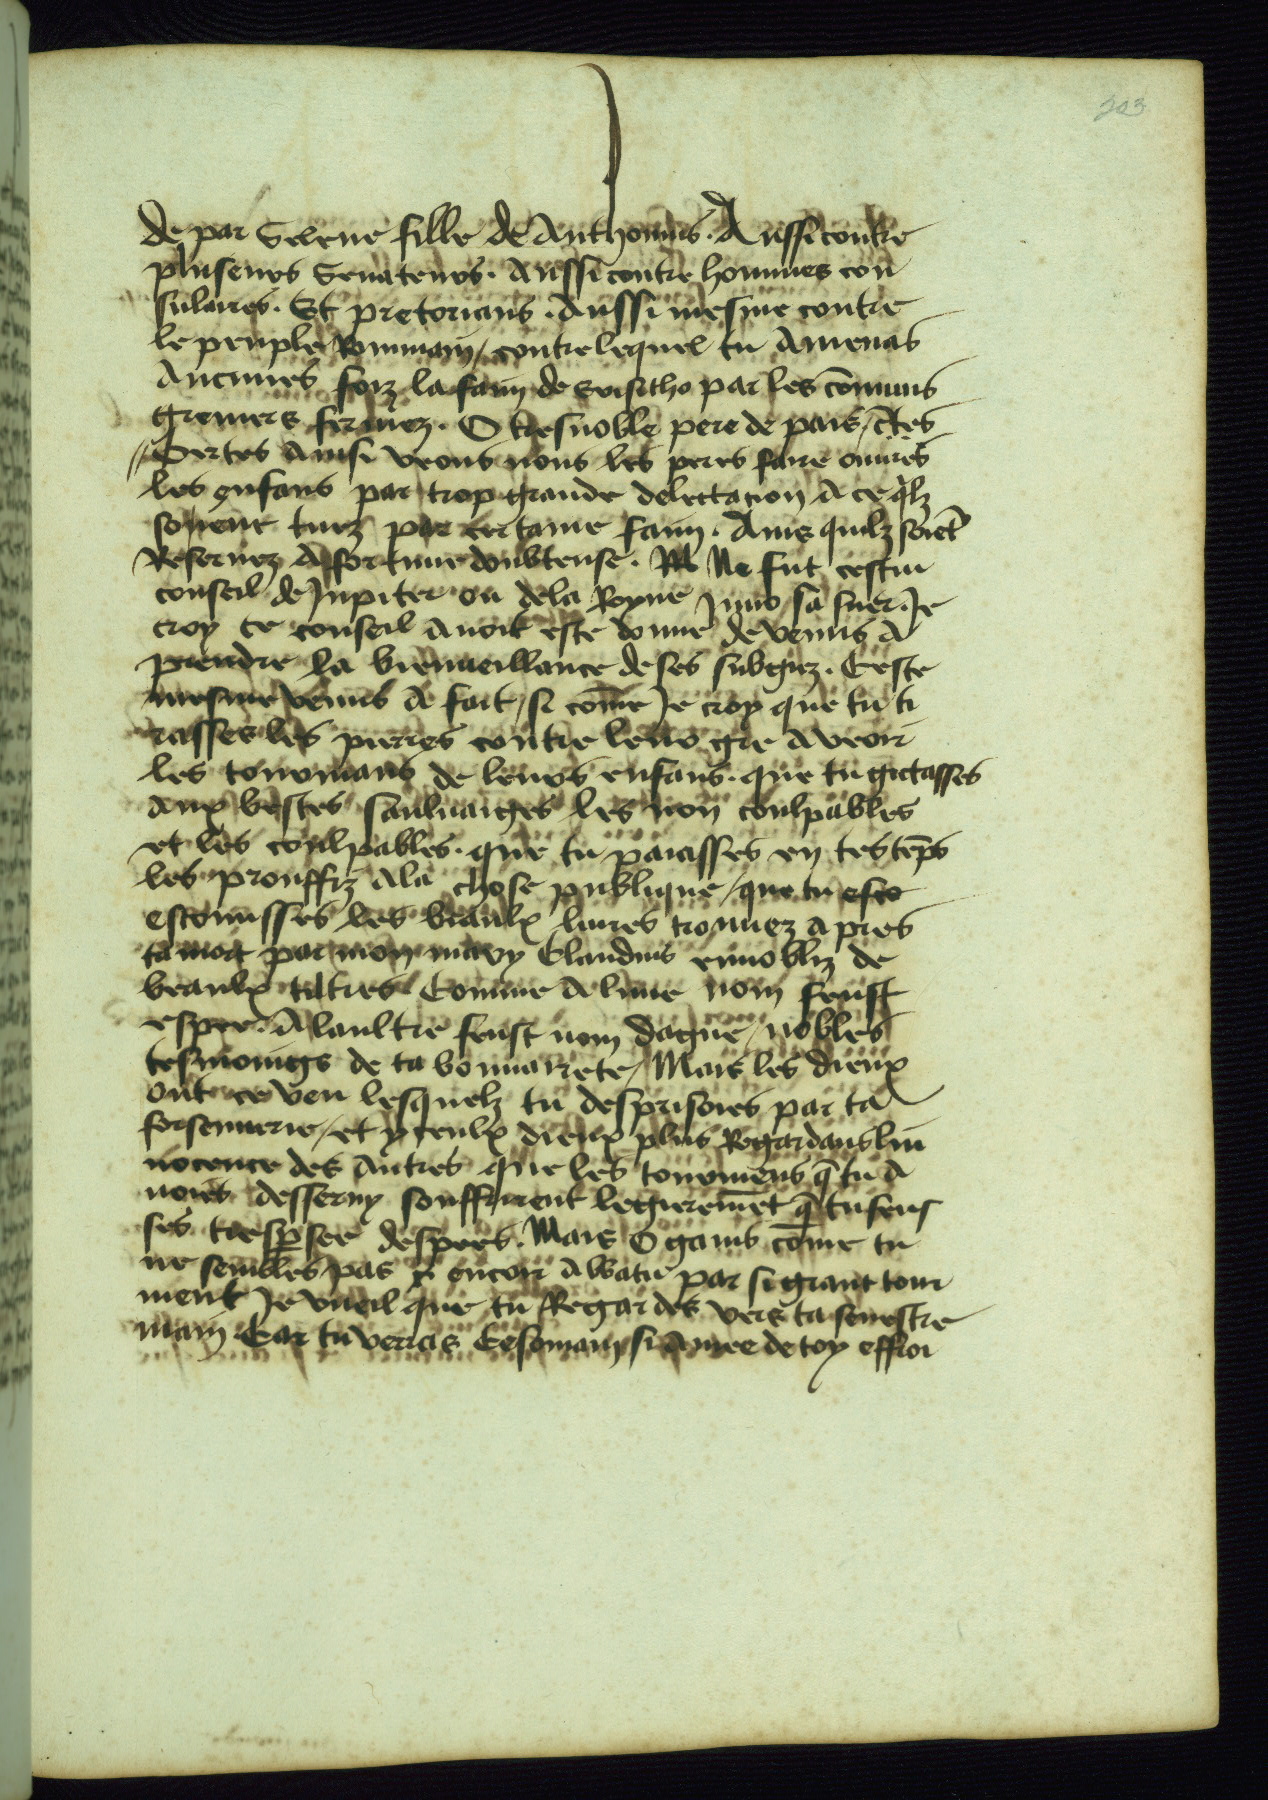 203
de par Selene fille de Anthonius. Aussi contre
pluseurs Senateurs. Aussi contre hommes con
sulaires. Et pretorians. Aussi mesme contre
le peuple Rommain/ contre lequel tu Amenas
Aucunes foiz la faim de par les cōmuns
greniers fermez. O tresnoble pere de pais/ c̄tes
Certes Ainsi veons nous les peres faire enuers
les enfans par trop grande delectacion A ce q̄lz
soient tuez par certaine faim. Ains quilz soiēt
Reseruez A fortune doubteuse. Ne fut cestui
conseil de Jupiter ou dela Royne Juno sa suer. Je
croy ce conseil Auoir este donne de venus A
prendre la bienueillance de ses subgiez. Ceste
mesme venus A fait/ si cōme Je croy que tu ti
rasses les peres contre leur gre A veoir
les tourmans de leurs enfans. que tu gictasses
Aux bestes sauluaiges les non coulpables
et les coulpables. que tu parasses en tes tēps
les prouffiz Ala chose publique/ que tu
les beaulx liures trouuez Apres
ta mort par mon mary Claudius ennobliz de
beaulx tiltres. Comme A lune nom feust
espee. A laultre feust nom dague/ nobles
tesmoings de ta bonnairete/ Mais les dieux
ont ce veu lesquelz tu desprisoies par ta
forsennerie/ et yceulx dieux plus Regardans lin
nocence des Autres que les tourmens q̄ tu A
uoies desseruy souffrirent legieremēt q̄ tu feus
ses tresp̄see despees. Mais O gaius cōme tu
ne sembles pas encor Abatu par si grant tour
ment Je vueil que tu Regardes vers ta senestre
main Car tu verras Cesoniam si Amee de toy effroi